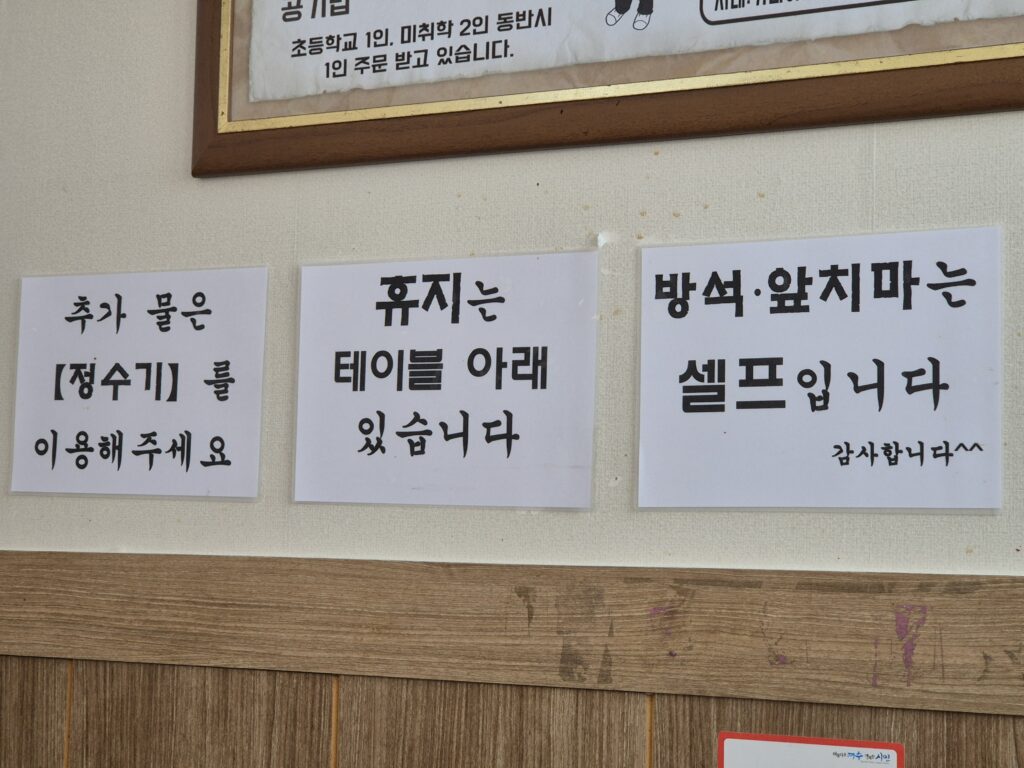 공기밥
초등학교 1인. 미취학 2인 동반시
1인 주문 받고 있습니다.
추가 물은
【정수기】를
이용해주세요
휴지는
테이블 아래
있습니다
방석·앞치마는
셀프입니다
감사합니다^^